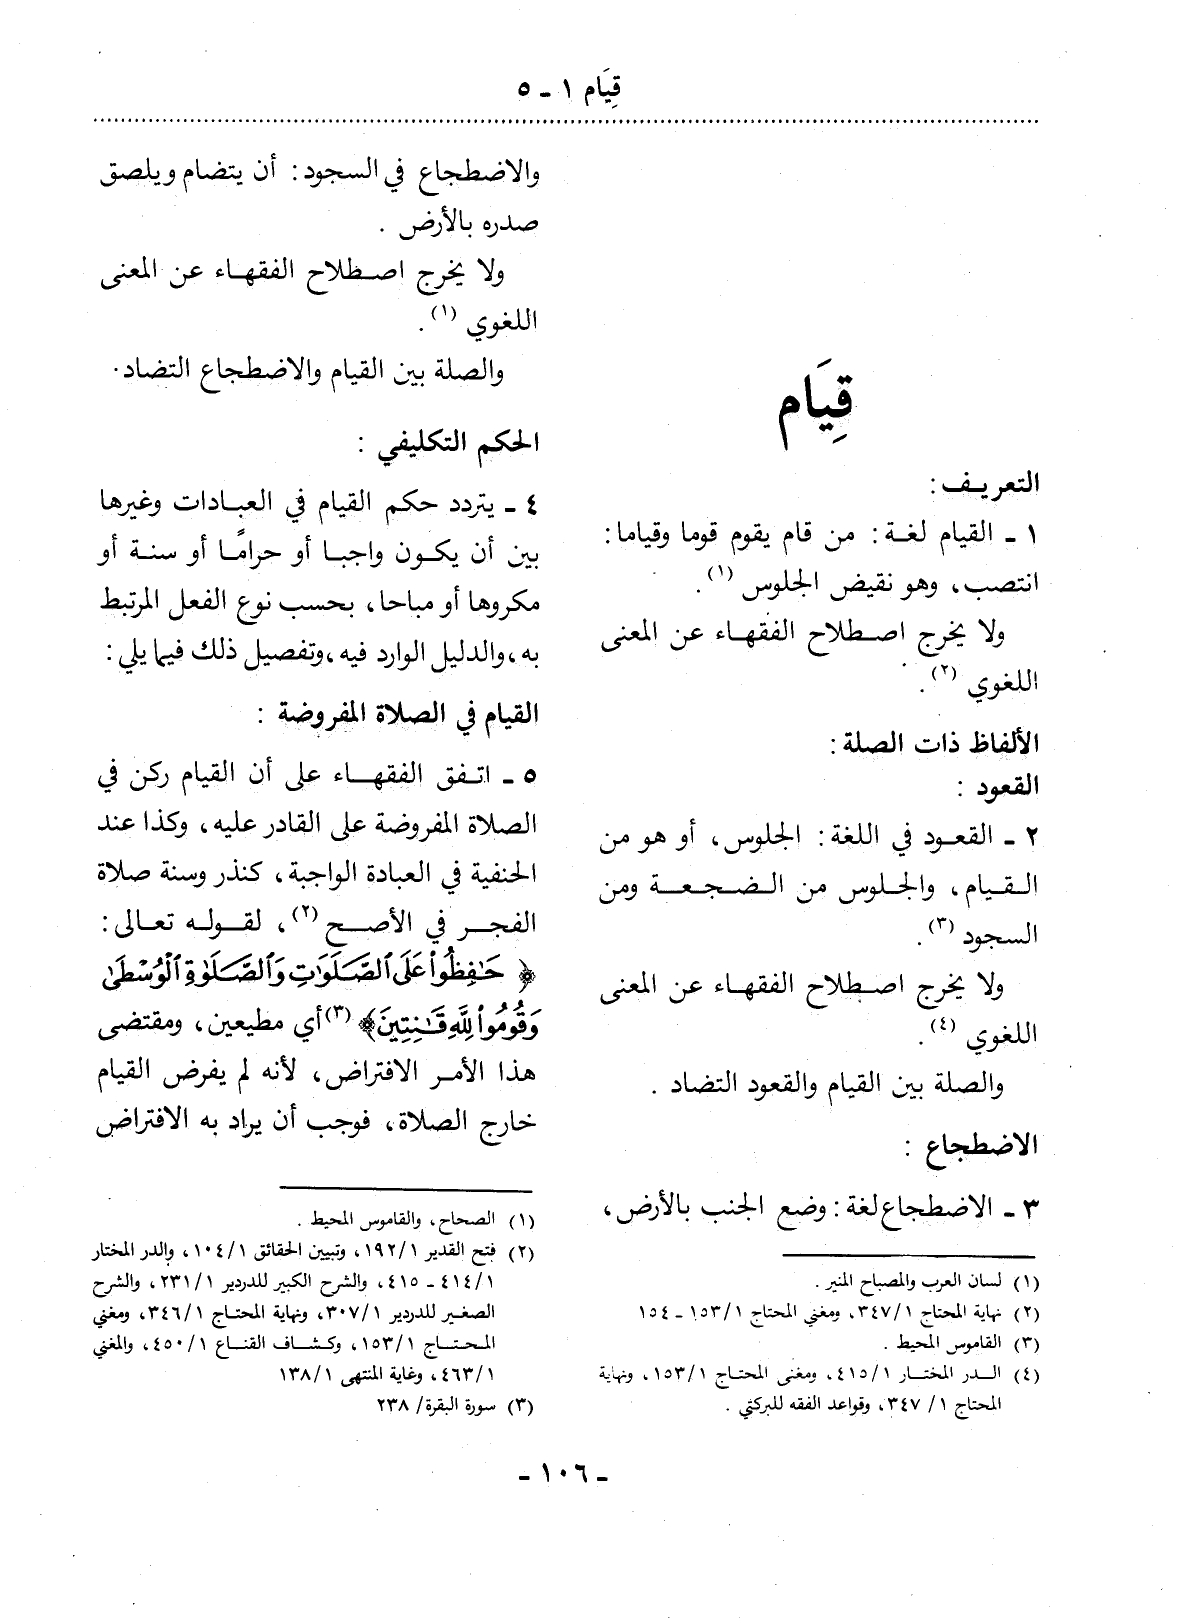 قِيَام ١ - ٥
قِيَام
التعريـف:
١ - القيام لغـة: من قام يقوم قوما وقياما:
انتصب، وهو نقيض الجلوس (١).
ولا يخرج اصطلاح الفقهاء عن المعنى
اللغوي (٢).
الألفاظ ذات الصلة:
القعود :
٢ - القعود في اللغة: الجلوس، أو هو من
القيام، والجلوس من الضجعة ومن
السجود (٣).
ولا يخرج اصطلاح الفقهاء عن المعنى
اللغوي (٤).
والصلة بين القيام والقعود التضاد .
الاضطجاع :
٣ - الاضطجاع لغة: وضع الجنب بالأرض،
(١) لسان العرب والمصباح المنير .
(٢) نهاية المحتاج ٣٤٧/١، ومغني المحتاج ١٥٣/١ - ١٥٤
(٣) القاموس المحيط .
(٤) الـدر المختـار ٤١٥/١، ومغنى المحتـاج ١٥٣/١، ونهاية
المحتاج ١/ ٣٤٧، وقواعد الفقه للبركتي .
والاضطجاع في السجود: أن يتضام ويلصق
صدره بالأرض .
ولا يخرج اصطلاح الفقهاء عن المعنى
اللغوي (١).
والصلة بين القيام والاضطجاع التضاد.
الحكم التكليفي :
٤ - يتردد حكم القيام في العبادات وغيرها
بين أن يكون واجبا أو حرامًا أو سنة أو
مكروها أو مباحا، بحسب نوع الفعل المرتبط
به، والدليل الوارد فيه، وتفصيل ذلك فيما يلي:
القيام في الصلاة المفروضة :
٥ - اتفق الفقهاء على أن القيام ركن في
الصلاة المفروضة على القادر عليه، وكذا عند
الحنفية في العبادة الواجبة، كنذر وسنة صلاة
الفجر في الأصح (٢)، لقوله تعالى:
﴿ حَٰفِظُوا۟ عَلَى ٱلصَّلَوَٰتِ وَٱلصَّلَوٰةِ ٱلْوُسْطَىٰ
وَقُومُوا۟ لِلَّهِ قَٰنِتِينَ﴾ (٣) أي مطيعين، ومقتضى
هذا الأمر الافتراض، لأنه لم يفرض القيام
خارج الصلاة، فوجب أن يراد به الافتراض
(١) الصحاح، والقاموس المحيط .
(٢) فتح القدير ١٩٢/١، وتبيين الحقائق ١٠٤/١، والدر المختار
٤١٤/١ - ٤١٥، والشرح الكبير للدردير ٢٣١/١، والشرح
الصغير للدردير ٣٠٧/١، ونهاية المحتاج ٣٤٦/١، ومغني
المحتاج ١٥٣/١، وكشاف القناع ٤٥٠/١، والمغني
٤٦٣/١، وغاية المنتهى ١٣٨/١
(٣) سورة البقرة/ ٢٣٨
- ١٠٦ -